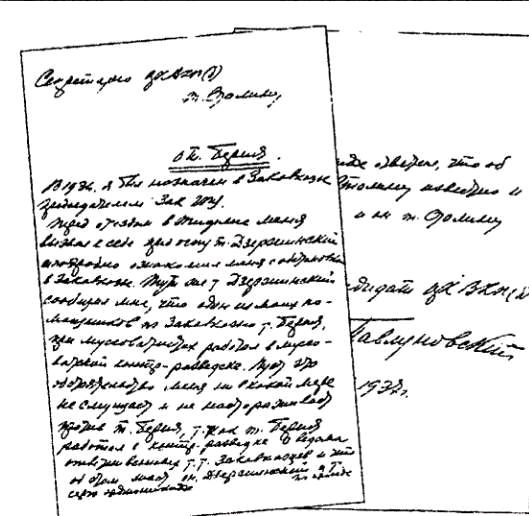 Секретарю ЦК ВКП(б)
т. Сталину
о т. Берия.
В 1926 г. я был назначен в Закавказье
председателем Зак ГПУ.
Перед отъездом в Тифлис меня
вызвал к себе пред. ОГПУ т. Дзержинский
и подробно ознакомил меня с обстановкой
в Закавказье. Тут же т. Дзержинский
сообщил мне, что один из моих по-
мощников по Закавказью т. Берия,
при мусаватистах работал в мусав-
атской контр-разведке. Пусть это
обстоятельство меня ни в какой мере
не смущает и не настораживает
против т. Берия, т. как т. Берия
работал в контр-разведке с ведома
ответственных т.т. Закавказцев и что
об этом знает он, Дзержинский и т.
Серго Орджоникидзе
что об
Сталину известно и
и он т. Сталину
ЦК ВКП(б)
Павлуновский
1937 г.